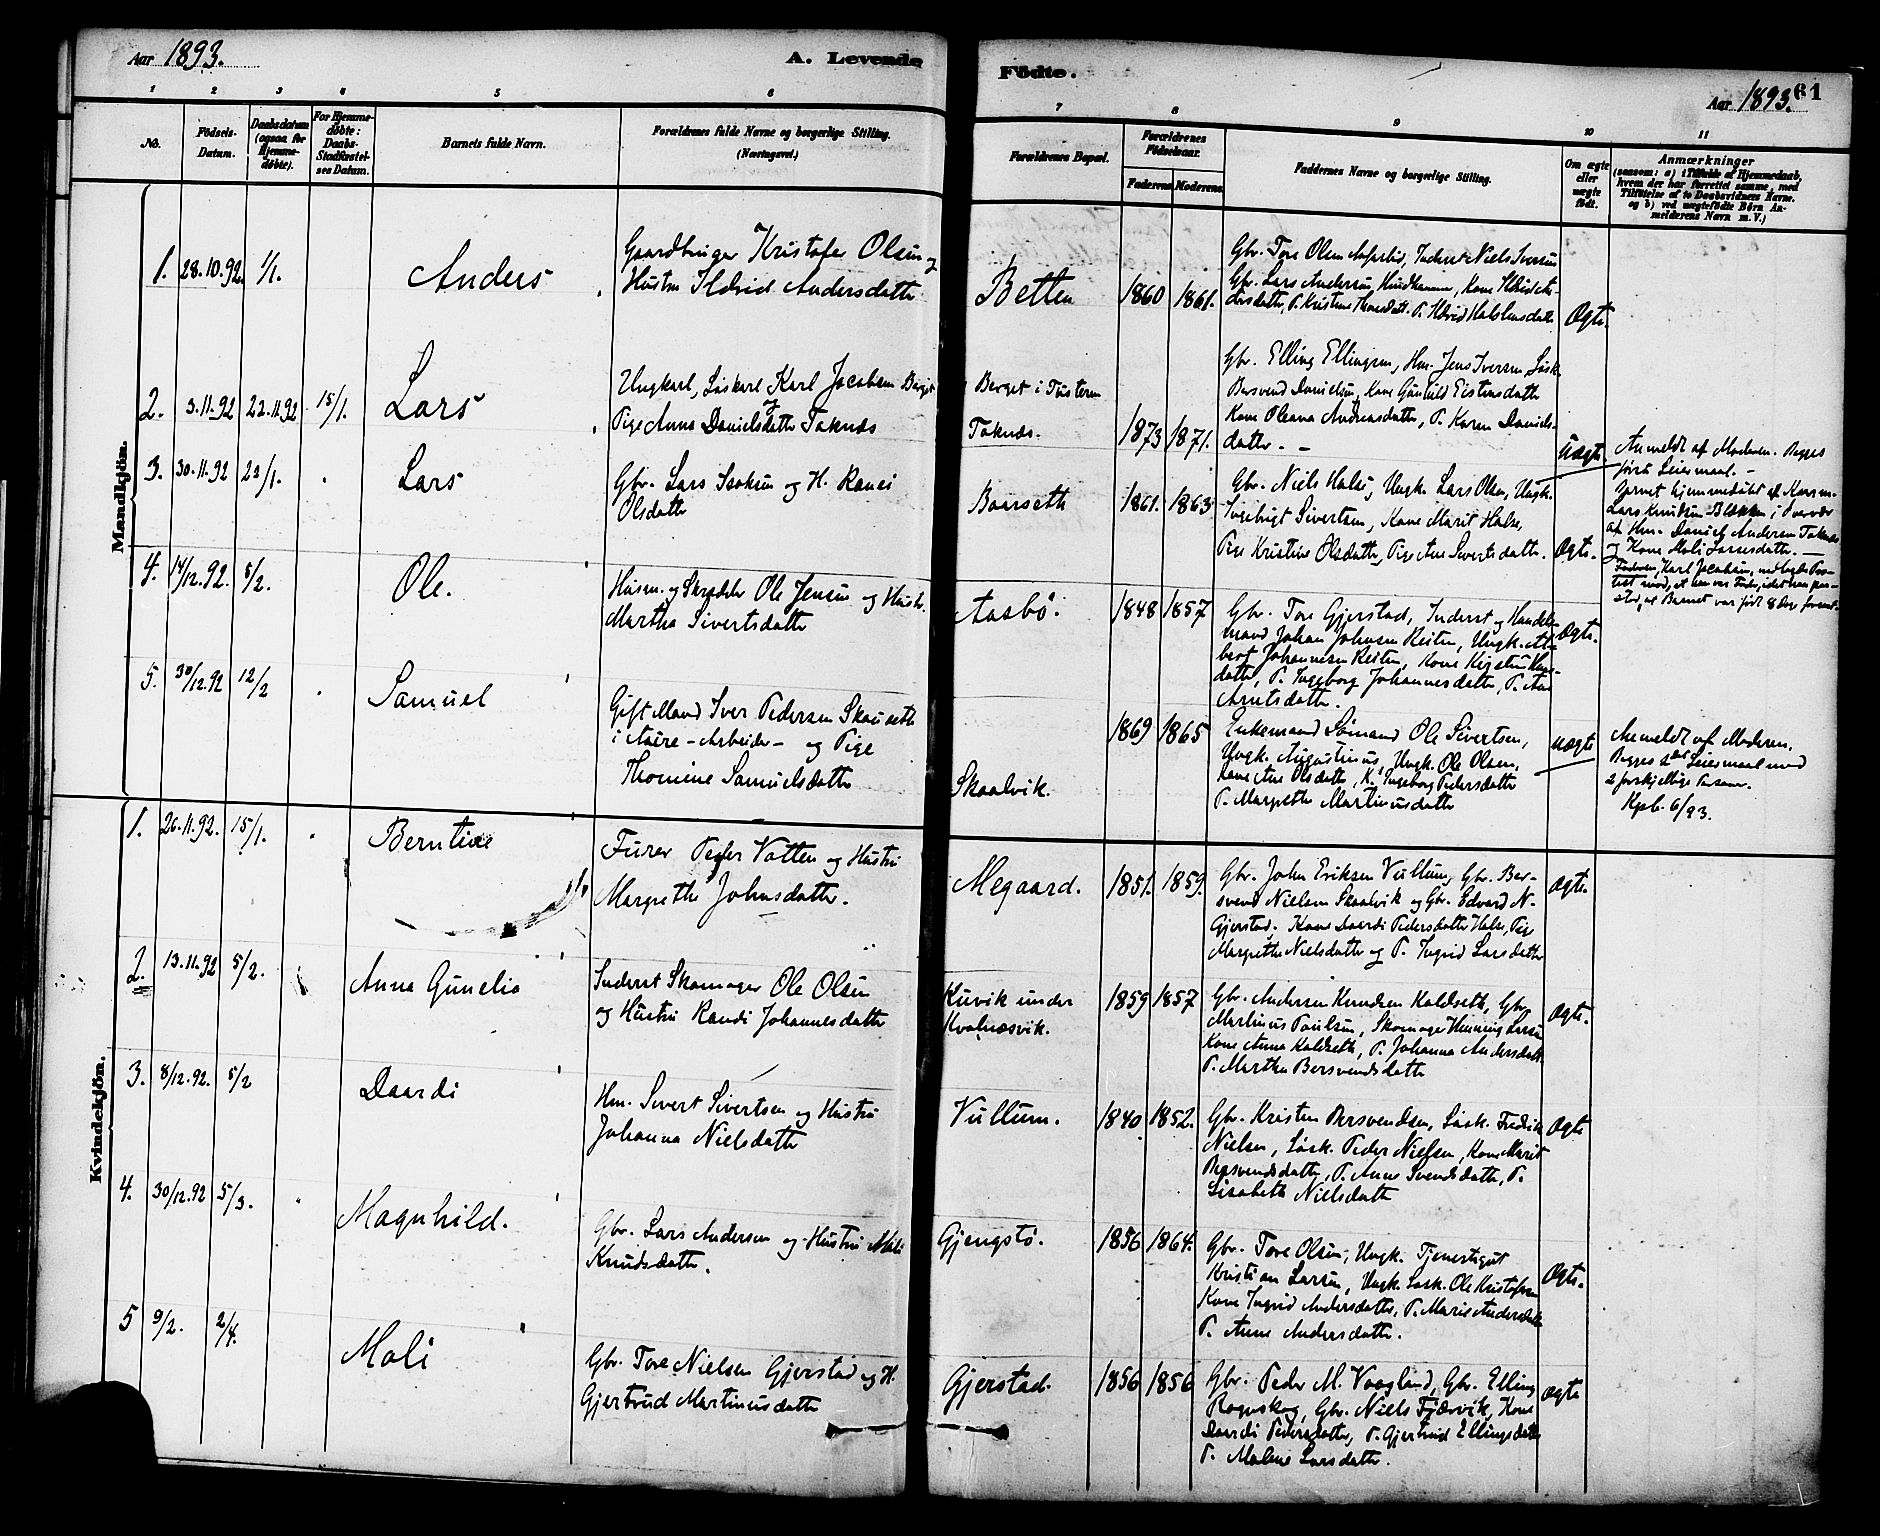 Aar 1893. A. Levende Födte. Aar 1893. 61
1 2 3 4 5 6 7 8 9 10 11
No. Födsels-Datum. Daabsdatum (ogsaa for Hjemmedøbte). For Hjemmedøbte: Daabs-Stadfæstelses Datum. Barnets fulde Navn. Forældrenes fulde Navne og borgerlige Stilling. (Næringsvei.) Forældrenes Bopæl. Forældrenes Födselsaar. Faderens Moderens Faddernes Navne og borgerlige Stilling. Om ægte eller uægte födt. Anmærkninger
(saasom: a) i Tilfælde af Hjemmedaab,
hvem der har forrettet samme, med
Tilføielse af to Daabsvidners Navne.
og b) ved uægtefödte Börn Anmelderens
Navn m. V.)
Mandkjön.
1. 28.10.92. 1/1. Anders
Gaardbruger Kristofer Olsen og
Hustru Ildrid Andersdatter
Betten 1860 1861.
Gbr. Tore Olsen, Inderst Niels Iversen
Gbr. Lars Andersen, Kone Ildrid An-
dersdatter, P. Kristine P. Ildrid Halstensdatter
Ægte.
2. 3.11.92 22.11.92 15/1. Lars
Ungkarl, Løskarl Karl Jacobsen Berget
og
Pige Anna Danielsdatter Taknæs
Berget i Tusteren
Taknæs. 1873 1871.
Gbr. Elling Ellingsen, Hm. Jens Iversen, Løsk.
Bersvend Danielsen, Kone Gunhild Eistensdatter
Kone Oleana Andreasdatter, P. Karen Daniels-
datter. –
Uægte.
Anmeldt af Moderen. Begges
første Leiermaal. –
Barnet hjemmedøbt af
Lars Knudsen i Overvær
af Hm. Daniel Andersen Taknæs
og Kone Mali Larsdatter. –
Faderen, Karl Jacobsen, nedlagde Pro-
test mod, at han var Fader, idet han paa-
stod, at Barnet var født 8 Dage
3. 30.11.92 22/1. Lars
Gbr. Lars Isaksen og H. Ranei
Olsdatter
Baarseth 1861. 1863
Gbr. Niels Halse, Ungk. Lars Olsen, Ungk.
Ingebrigt Sivertsen, Kone Marit Halse,
Pige Kristine Olsdatter, Pige Ane Sivertsdatter.
Ægte.
4. 14/12.92. 5/2. Ole.
Husm. og Skrædder Ole Jensen og Hustr.
Martha Sivertsdatter
Aasbø. 1848 1857
Gbr. Tore Gjerstad, Inderst og Handels-
mand Johan Johnsen Reiten, Ungk. Al-
bert Johannesen Reiten, Kone Kirstine
datter, P. Ingeborg Johannesdatter, P. Ane
Arntsdatter.
Ægte.
5. 30/12.92 12/2 Samuel
Gift Mand Iver Pedersen Skauseth
i Aure – Arbeider – og Pige
Thomine Samuelsdatter
Skaalvik. 1869 1865
Enkemand Sömand Ole Sivertsen,
Ungk. Augustinus, Ungk. Ole Olsen,
Kone Ane Olsdatter, K. Ingeborg Pedersdatter
P. Margrethe Martinusdatter
Uægte
Anmeldt af Moderen.
Begges 2det Leiermaal med
2 forskjellige Person.
Kpb. 6/93.
Kvindekjön.
1. 26.11.92. 15/1. Berntine
Furer Peder Vatten og Hustru
Margrethe Johnsdatter.
Megaard. 1851. 1859.
Gbr. John Eriksen Vullum, Gbr. Ber-
svend Nielsen Skaalvik og Gbr. Edvard N.
Gjerstad. Kone Daardi Pedersdatter Halse, Pige
Margrethe Nielsdatter og P. Ingrid Larsdatter
Ægte.
2. 13.11.92 5/2. Anna Gunelia
Inderst Skomager Ole Olsen
og Hustru Randi Johannesdatter
Kuvik under
Kvalnæsvik. 1859 1857
Gbr. Andersen Knudsen Kaldseth, Gbr.
Martinus Paulsen, Skomager Henning Larsen
Kone Anna Kaldseth, P. Johanna Andersdatter
P. Martha Bersvendsdatter
Ægte.
3. 8/12.92. 5/2 Daardi
Hm. Sivert Sivertsen og Hustru
Johanna Nielsdatter
Vullum. 1840 1852.
Gbr. Kristen Bersvendsen, Løsk. Fredrik
Nielsen, Løsk. Peder Nielsen, Kone Marit
Bersvendsdatter, P. Anne Svendsdatter, P.
Lisabeth Nielsdatter
Ægte
4. 30/12.92 5/3. Magnhild.
Gbr. Lars Andersen og Hustru Mali
Knudsdatter.
Gjengstø. 1856 1864.
Gbr. Tore Olsen, Ungk. Tjenestegut
Kristian Larsen, Ungk. Løsk. Ole Kristofersen
Kone Ingrid Andersdatter, P. Marie Andersdatter
P. Anne Andersdatter.
Ægte.
5 9/2. 2/4. Mali
Gbr. Tore Nielsen Gjerstad og H.
Gjertrud Martinusdatter
Gjerstad. 1856 1856
Gbr. Peder M. Vaagland, Gbr. Elling
Rognskog, Gbr. Niels Fjærvik, Kone
Daardi Pedersdatter, P. Gjertrud Ellingsdatter
P. Malene Larsdatter.
Ægte